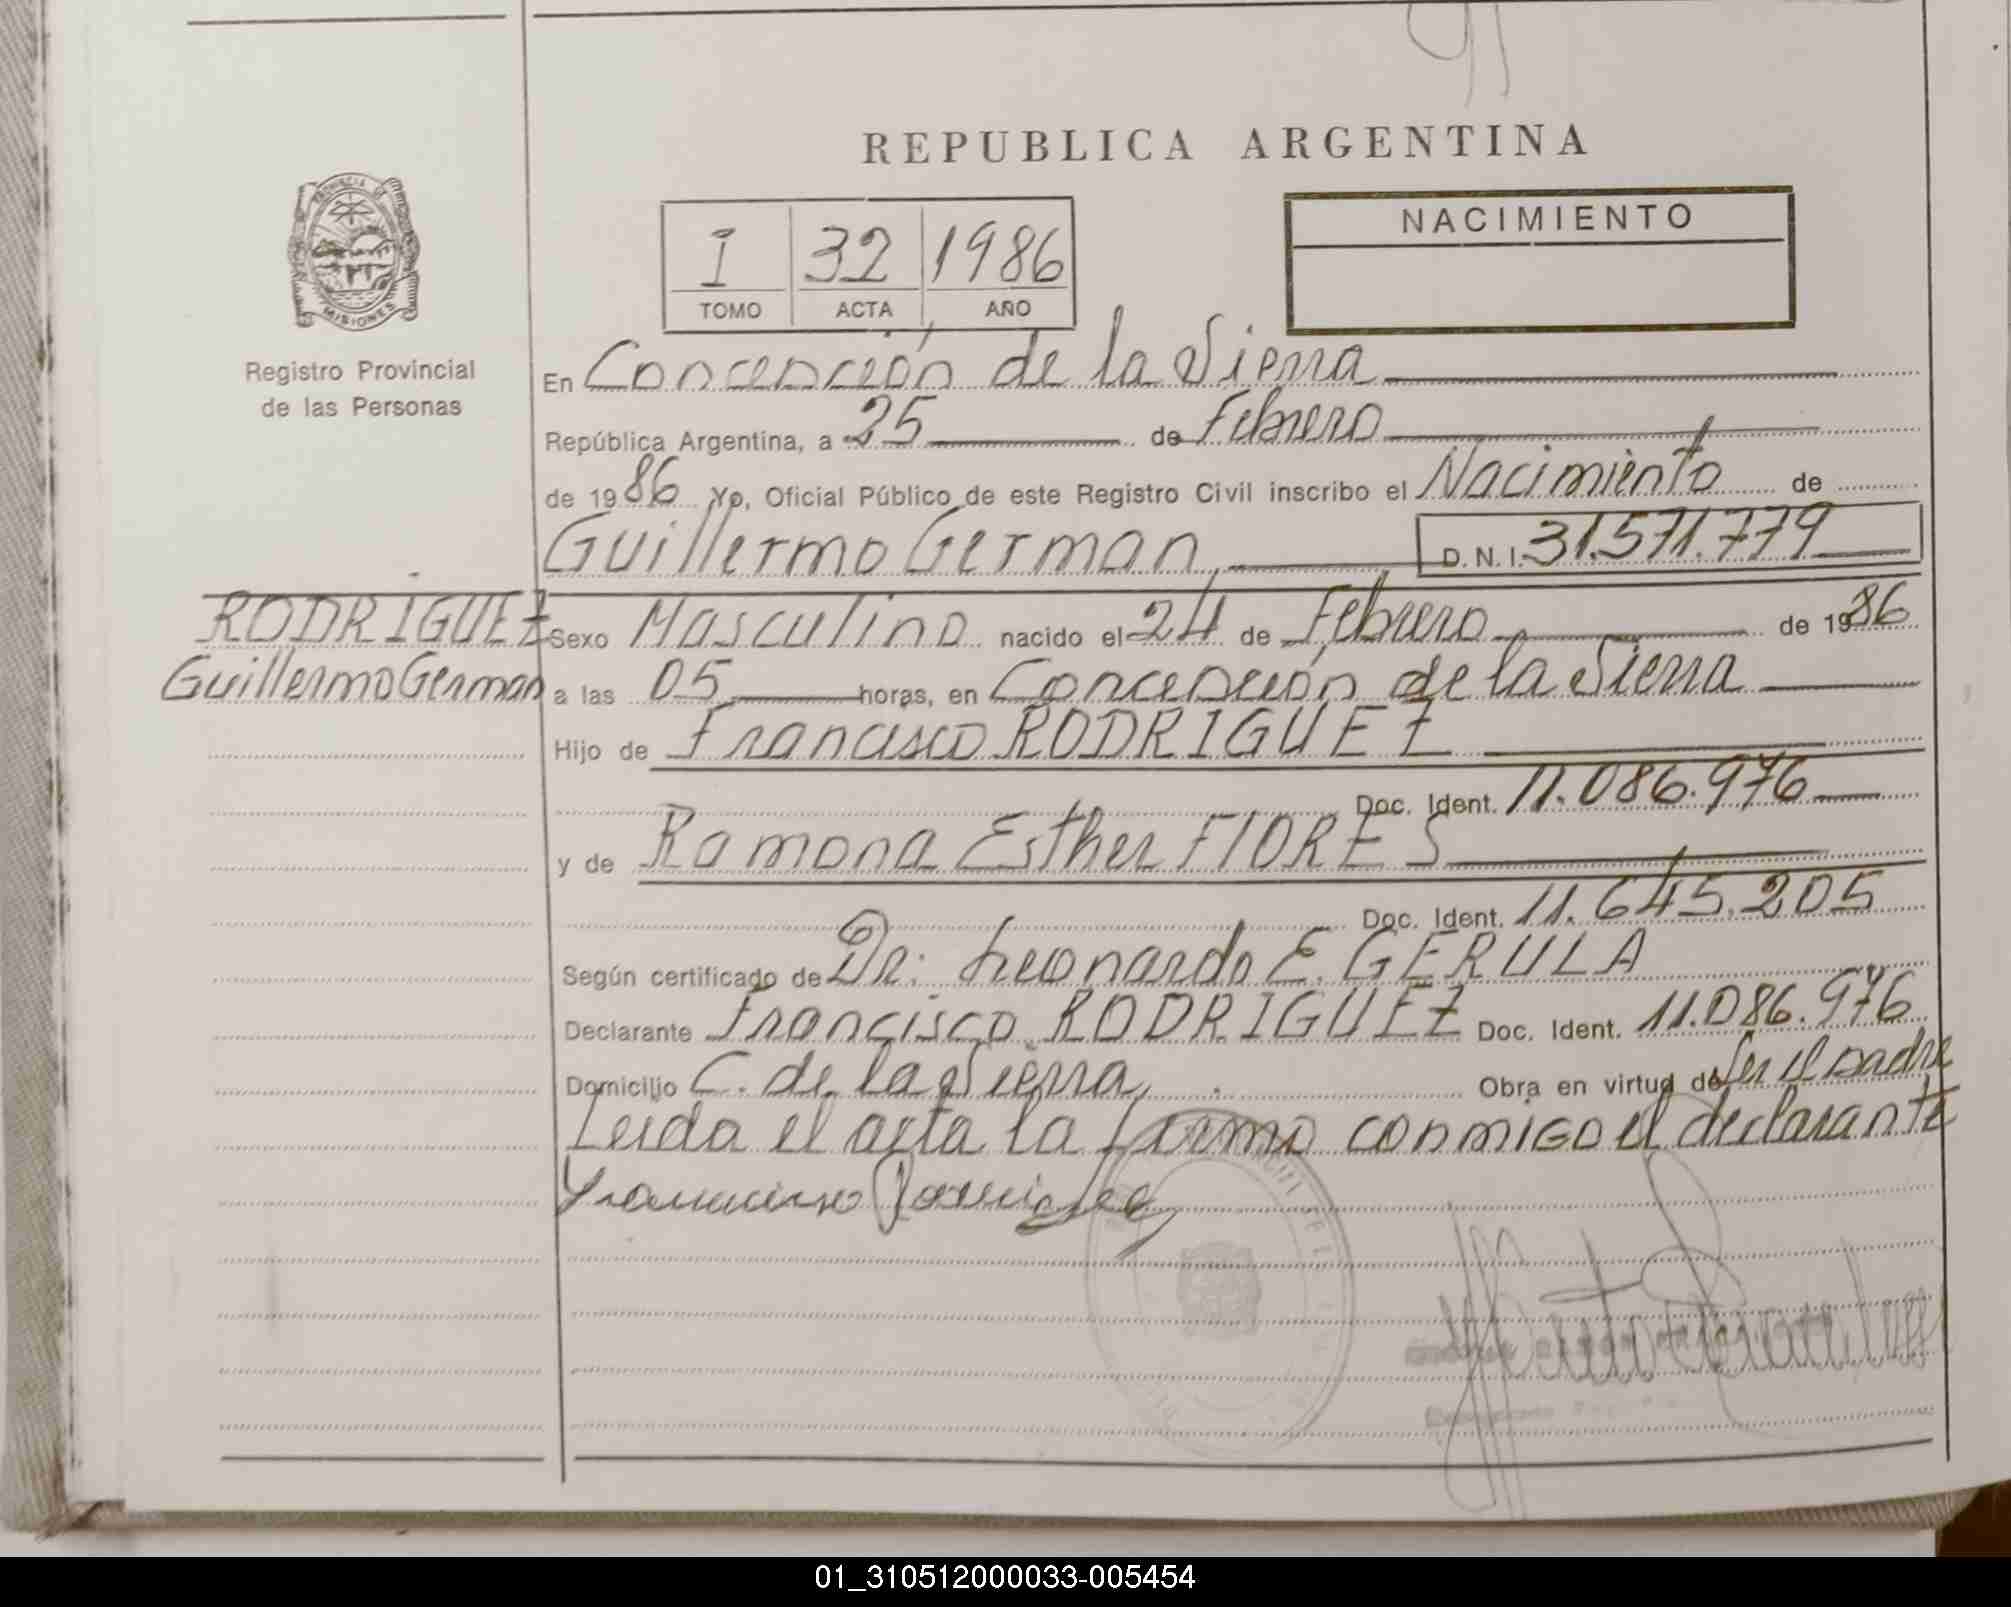 REPUBLICA ARGENTINA
PROVINCIA DE
MISIONES
Registro Provincial
de las Personas
I 32 1986
TOMO ACTA AÑO
NACIMIENTO
En Concepción de la Sierra
República Argentina, a 25 de Febrero
de 1986 Yo, Oficial Público de este Registro Civil inscribo el Nacimiento de
Guillermo German D. N. I. 31.571.779
RODRIGUEZ
Guillermo German
Sexo Masculino nacido el 24 de Febrero de 1986
a las 05 horas, en Concepción de la Sierra
Hijo de Francisco RODRIGUEZ
Doc. Ident. 11.086.976
y de Ramona Esther FLORES
Doc. Ident. 11.645.205
Según certificado de Dr: Leonardo E. GERULA
Declarante Francisco RODRIGUEZ Doc. Ident. 11.086.976
Domicilio C. de la Sierra Obra en virtud de Ser el padre
Leida el acta la firma conmigo el declarante
01_310512000033-005454